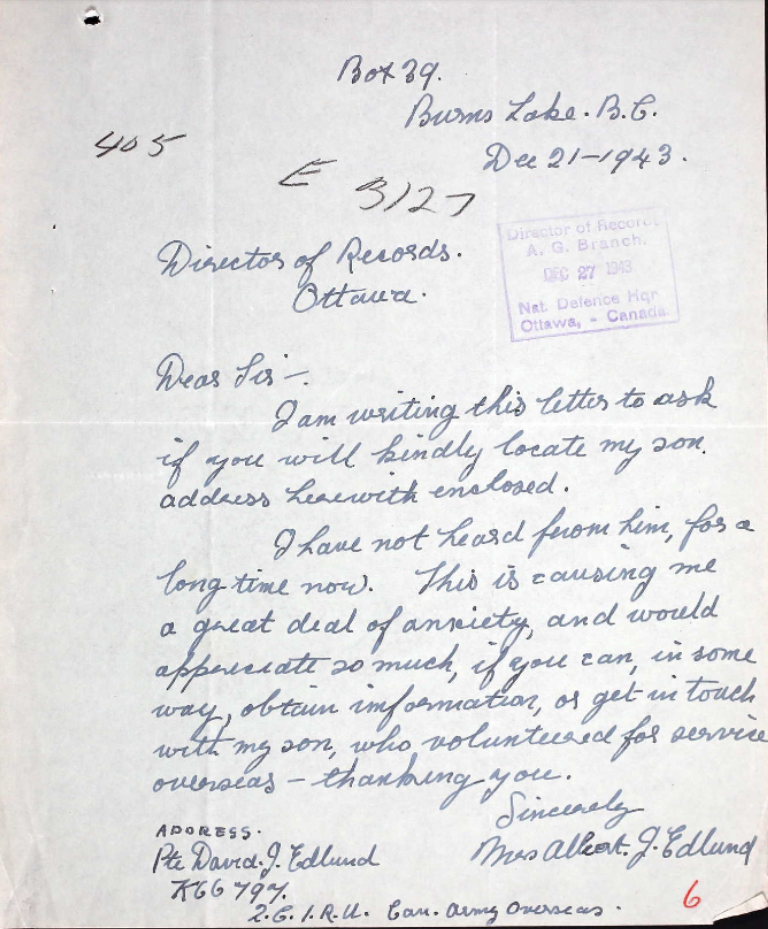 Box 39.
Burns Lake. B.C.
405
Dec 21-1943.
E 3127
Director of Records.
A. G. Branch.
DEC 27 1943
Nat. Defence Hqr
Ottawa, - Canada.
Director of Records.
Ottawa.
Dear Sir -.
I am writing this letter to ask
if you will kindly locate my son.
address herewith enclosed.
I have not heard from him, for a
long time now. This is causing me
a great deal of anxiety, and would
appreciate so much, if you can, in some
way, obtain information, or get in touch
with my son, who volunteered for service
overseas - thanking you.
Sincerely
Mrs Albert. J. Edlund
ADDRESS.
Pte David. J. Edlund
K66797.
2. C. I. R. U. Can. Army Overseas.
6